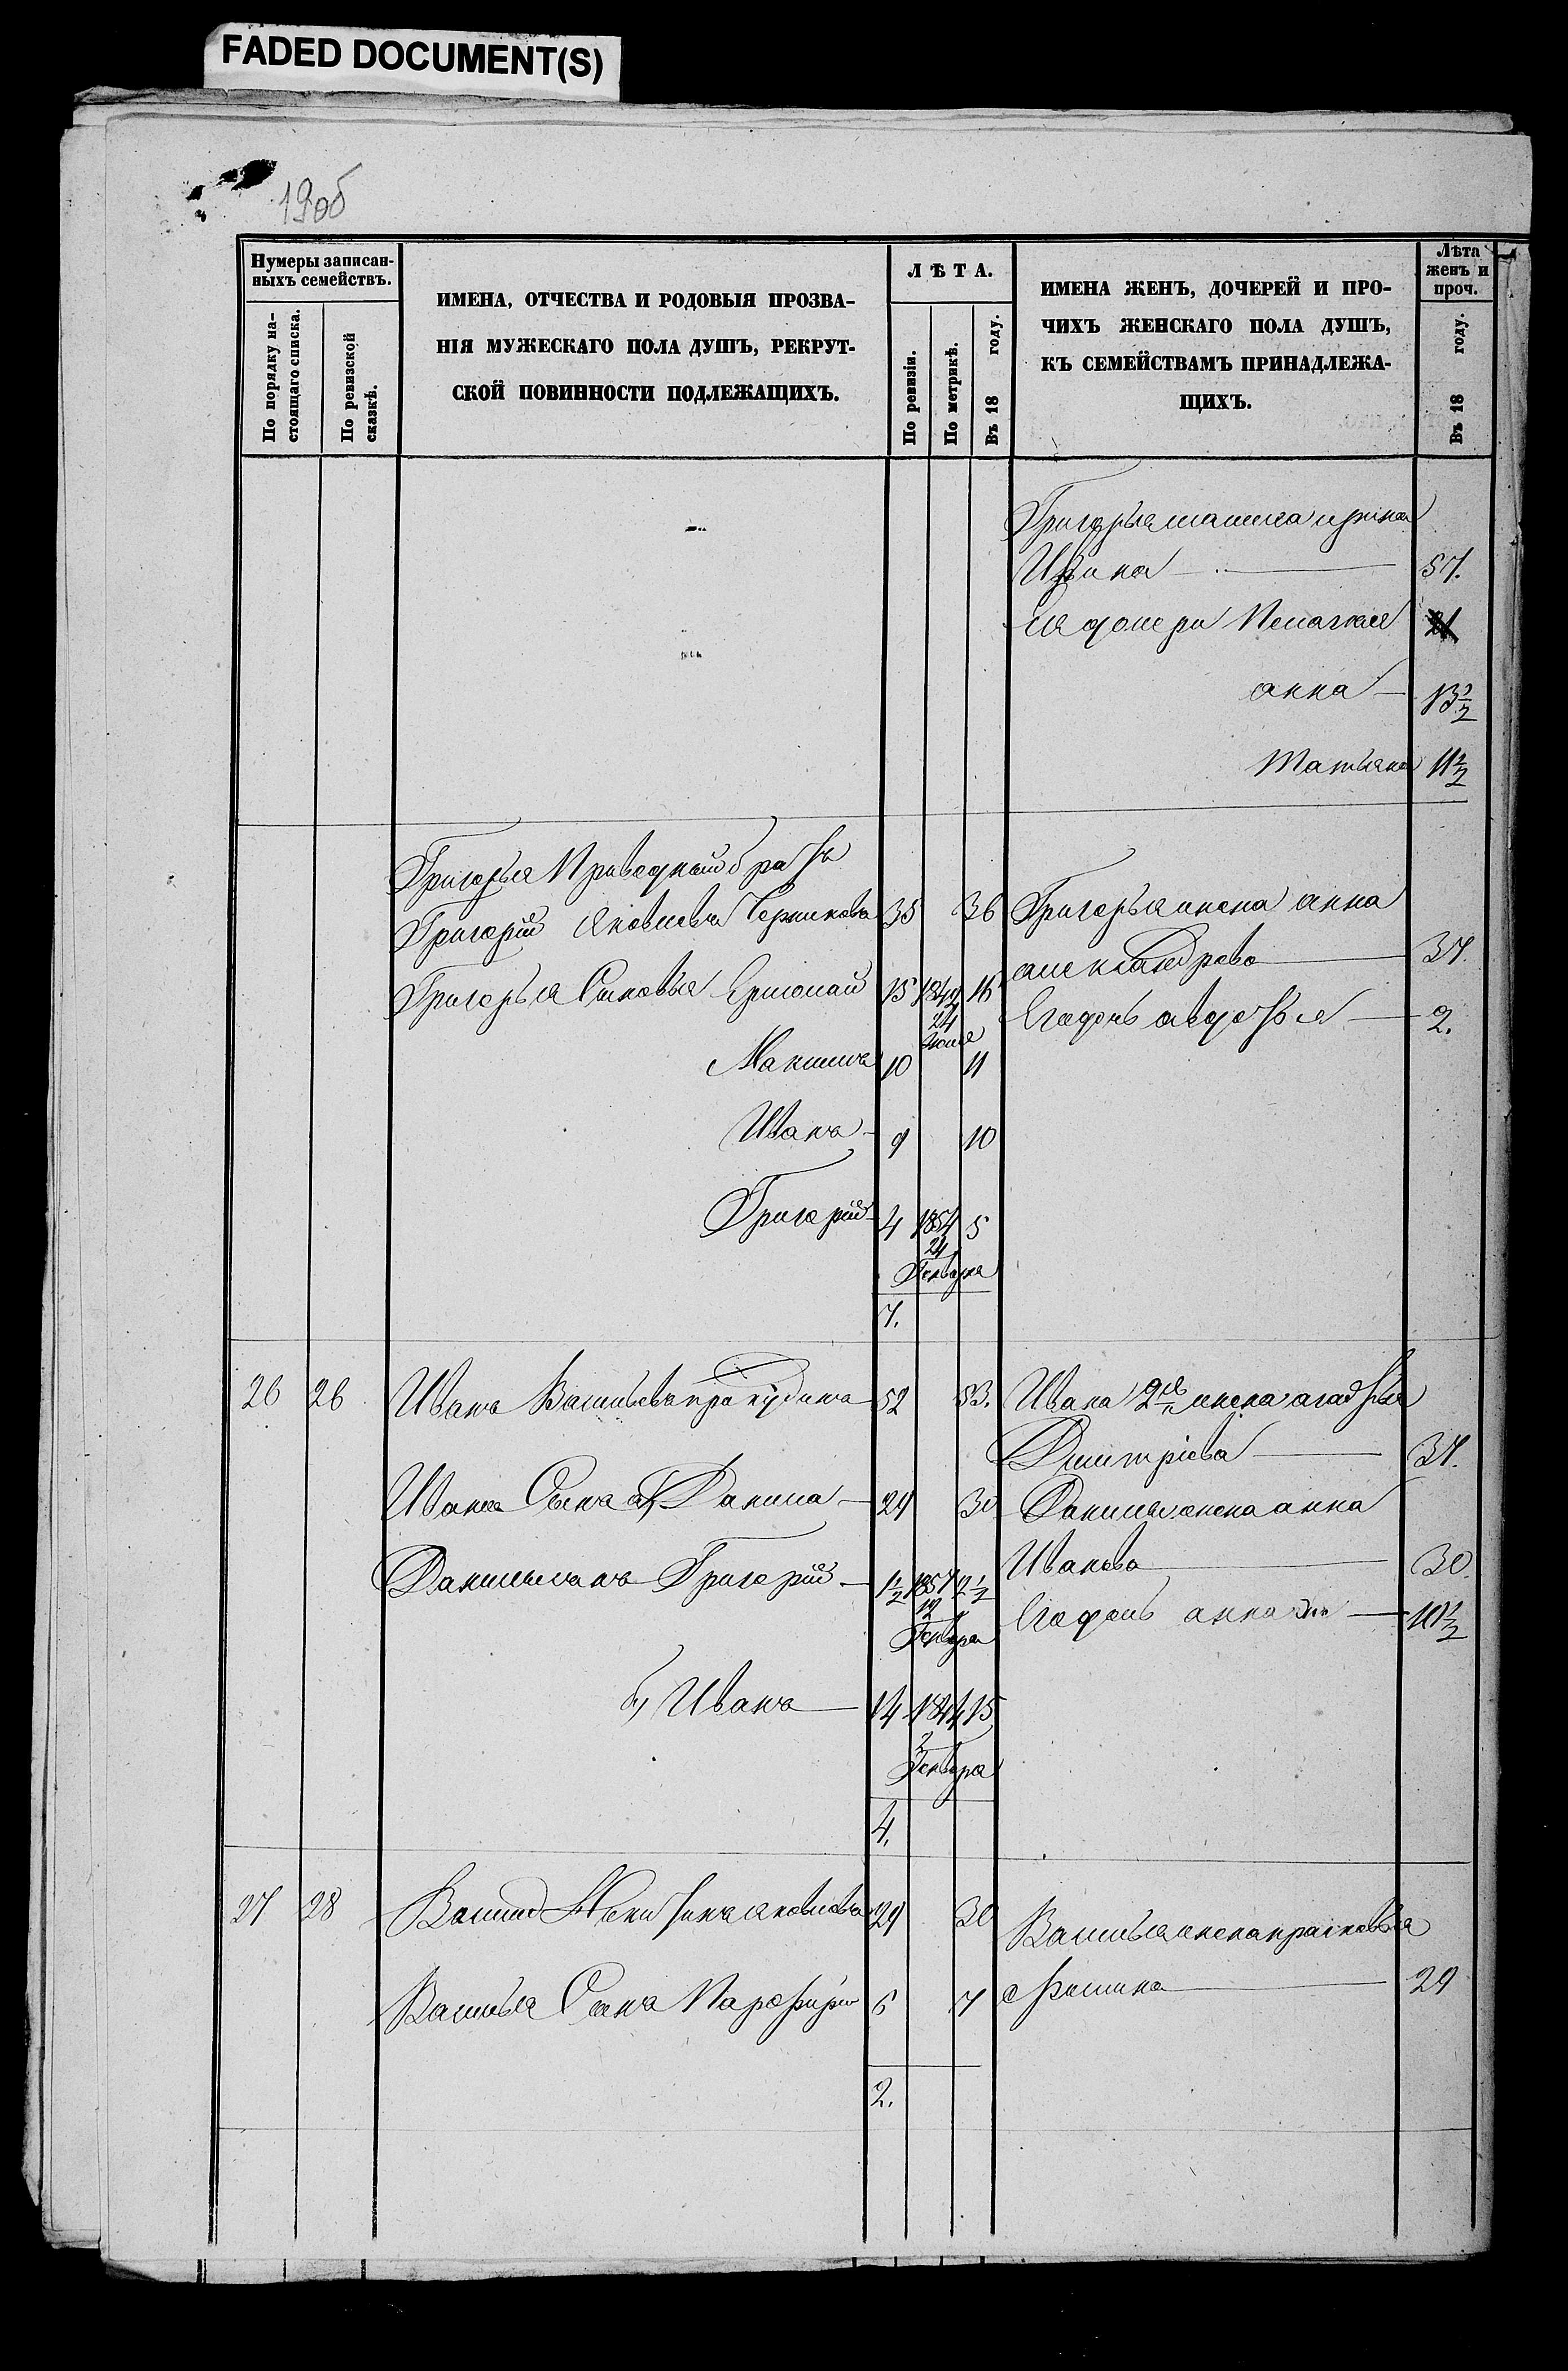 FADED DOCUMENT(S)
19об
Нумеры записан-
ныхъ семействъ.
По порядку на-
стоящаго списка.
По ревизской
сказкѣ.
ИМЕНА, ОТЧЕСТВА И РОДОВЫЯ ПРОЗВА-
НІЯ МУЖЕСКАГО ПОЛА ДУШЪ, РЕКРУТ-
СКОЙ ПОВИННОСТИ ПОДЛЕЖАЩИХЪ.
ЛѢТА.
По ревизіи.
По метрикѣ.
Въ 18 году.
ИМЕНА ЖЕНЪ, ДОЧЕРЕЙ И ПРО-
ЧИХЪ ЖЕНСКАГО ПОЛА ДУШЪ,
КЪ СЕМЕЙСТВАМЪ ПРИНАДЛЕЖА-
ЩИХЪ.
Лѣта
женъ и
проч.
Въ 18 году.
Григорья
57.
Ея дочери Пелагея 21
анна 13 1/2
Татьяна 11 1/2
Григорья братъ
Григорій Яковлевъ 35 36
Григорья жена анна
александрова 37.
Григорья Сыновья Ермолай 15 1842 16
24
Его дочь авдотья 2.
Максимъ 10 11
Иванъ 9 10
Григорій 4 1854 5
24
Генваря
7.
26 26 Иванъ Васильевъ 52 53.
Ивана 2я жена
Дмитріева 37.
Ивана Сынъ а) Данила 29 30
Данилы жена анна
Иванова 30.
Григорій 1 1/2 1857 2 1/2
12
Генваря
Его дочь анна 10 1/2
б) Иванъ 14 1844 15
2
Генваря
4.
27 28 Василій Яковлевъ 29 30
Василья жена прасковья
29
Василья Сынъ 6 7
2.